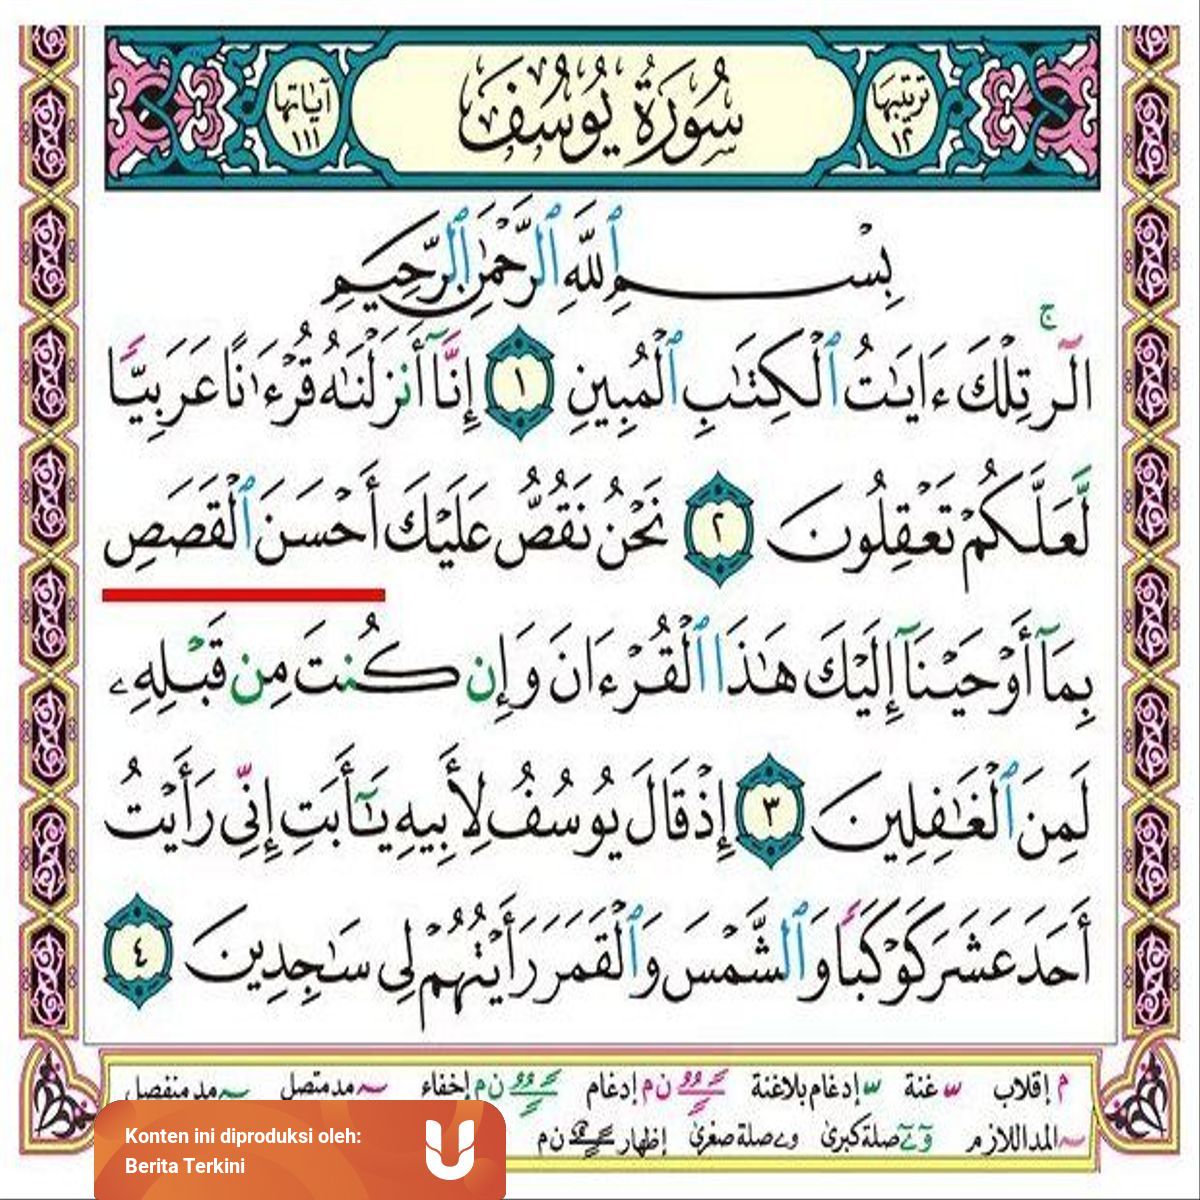 ترتيبها ١٢
سُورَةُ يُوسُفَ
آياتها ١١١
بِسْمِ ٱللَّهِ ٱلرَّحْمَٰنِ ٱلرَّحِيمِ
الٓرۚ تِلْكَ ءَايَٰتُ ٱلْكِتَٰبِ ٱلْمُبِينِ ١ إِنَّآ أَنزَلْنَٰهُ قُرْءَٰنًا عَرَبِيًّا
لَّعَلَّكُمْ تَعْقِلُونَ ٢ نَحْنُ نَقُصُّ عَلَيْكَ أَحْسَنَ ٱلْقَصَصِ
بِمَآ أَوْحَيْنَآ إِلَيْكَ هَٰذَا ٱلْقُرْءَانَ وَإِن كُنتَ مِن قَبْلِهِۦ
لَمِنَ ٱلْغَٰفِلِينَ ٣ إِذْ قَالَ يُوسُفُ لِأَبِيهِ يَٰٓأَبَتِ إِنِّى رَأَيْتُ
أَحَدَ عَشَرَ كَوْكَبًا وَٱلشَّمْسَ وَٱلْقَمَرَ رَأَيْتُهُمْ لِى سَٰجِدِينَ ٤
م إقلاب غنة إدغام بلاغنة ن م إدغام ن م إخفاء مد متصل مد منفصل
المد اللازم صلة كبرى صلة صغرى إظهار ن م
Konten ini diproduksi oleh:
Berita Terkini